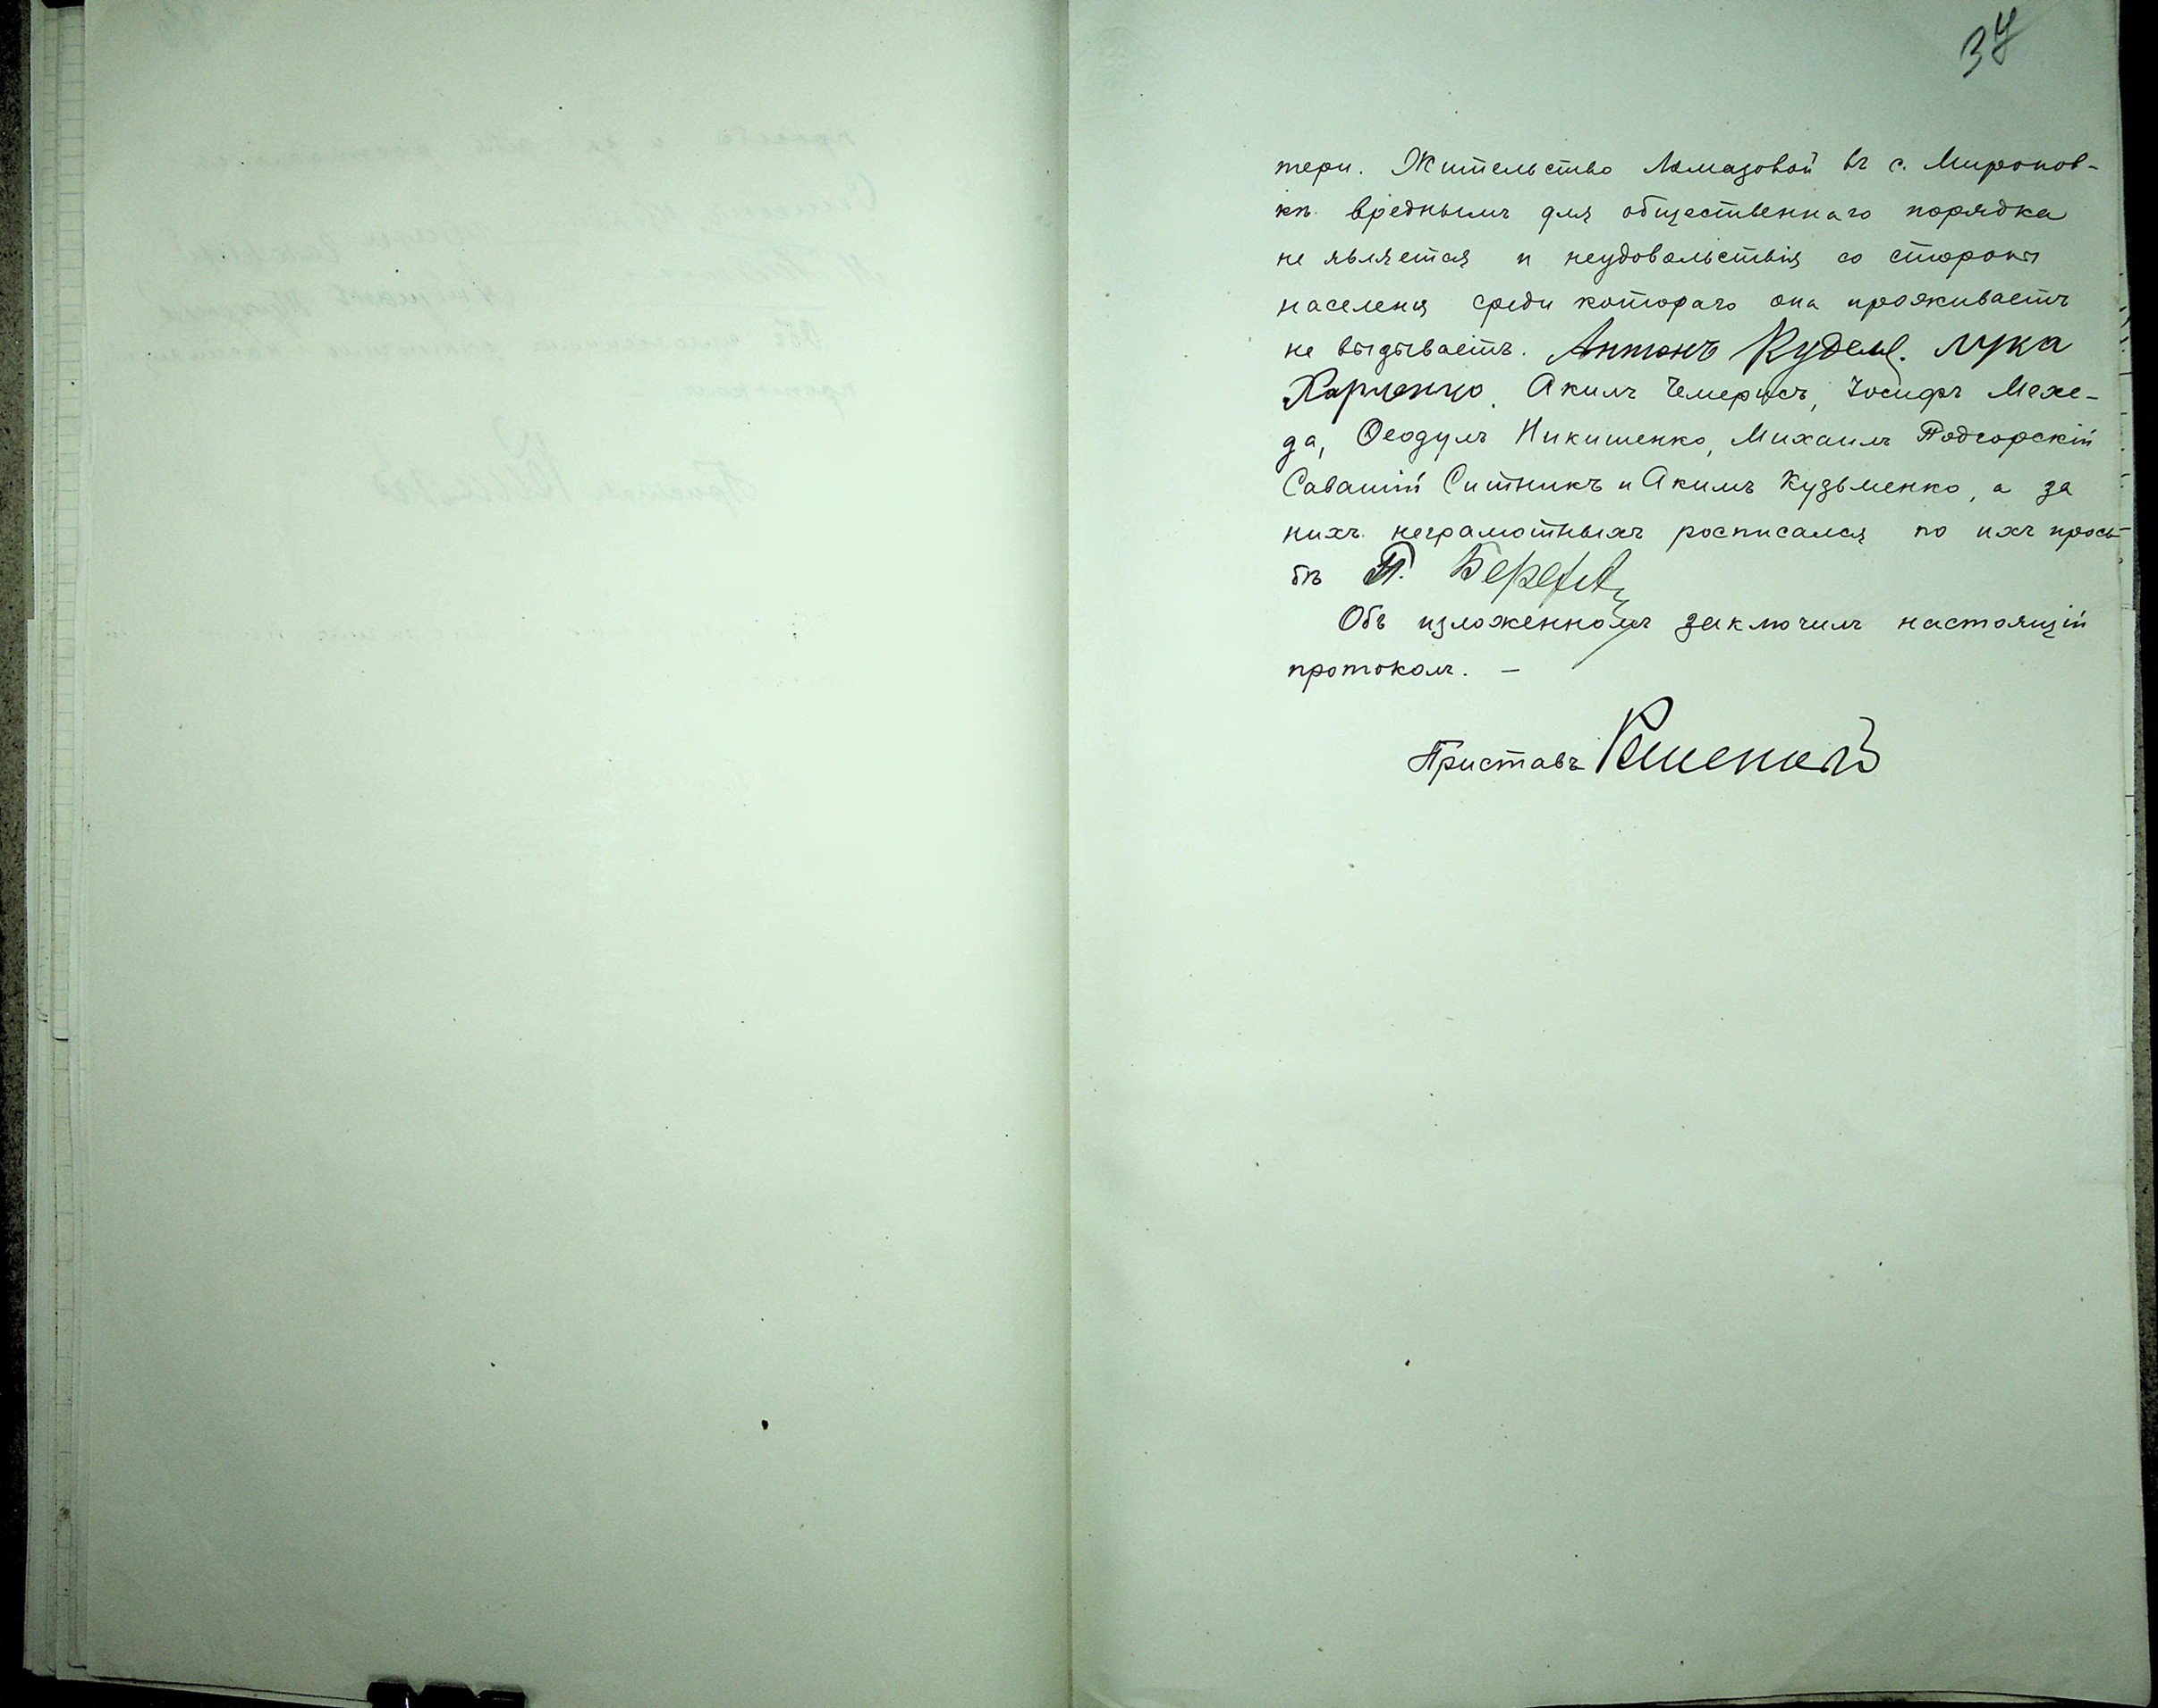 37
тери. Жительство Ломазовой въ с. Миронов-
кѣ вреднымъ для общественнаго порядка
не является и неудовольствія со стороны
населенія среди котораго она проживаетъ
не вызываетъ. Антонъ Кудем. Лука
Харченко. Акимъ Чемерисъ, Іосифъ Мехе-
да, Ѳеодулъ Никишенко, Михаилъ Подгорскій
Саватій Ситникъ и Акимъ Кузьменко, а за
нихъ неграмотныхъ росписался по ихъ прось-
бѣ П.
Объ изложенномъ заключилъ настоящій
протоколъ. —
Приставъ